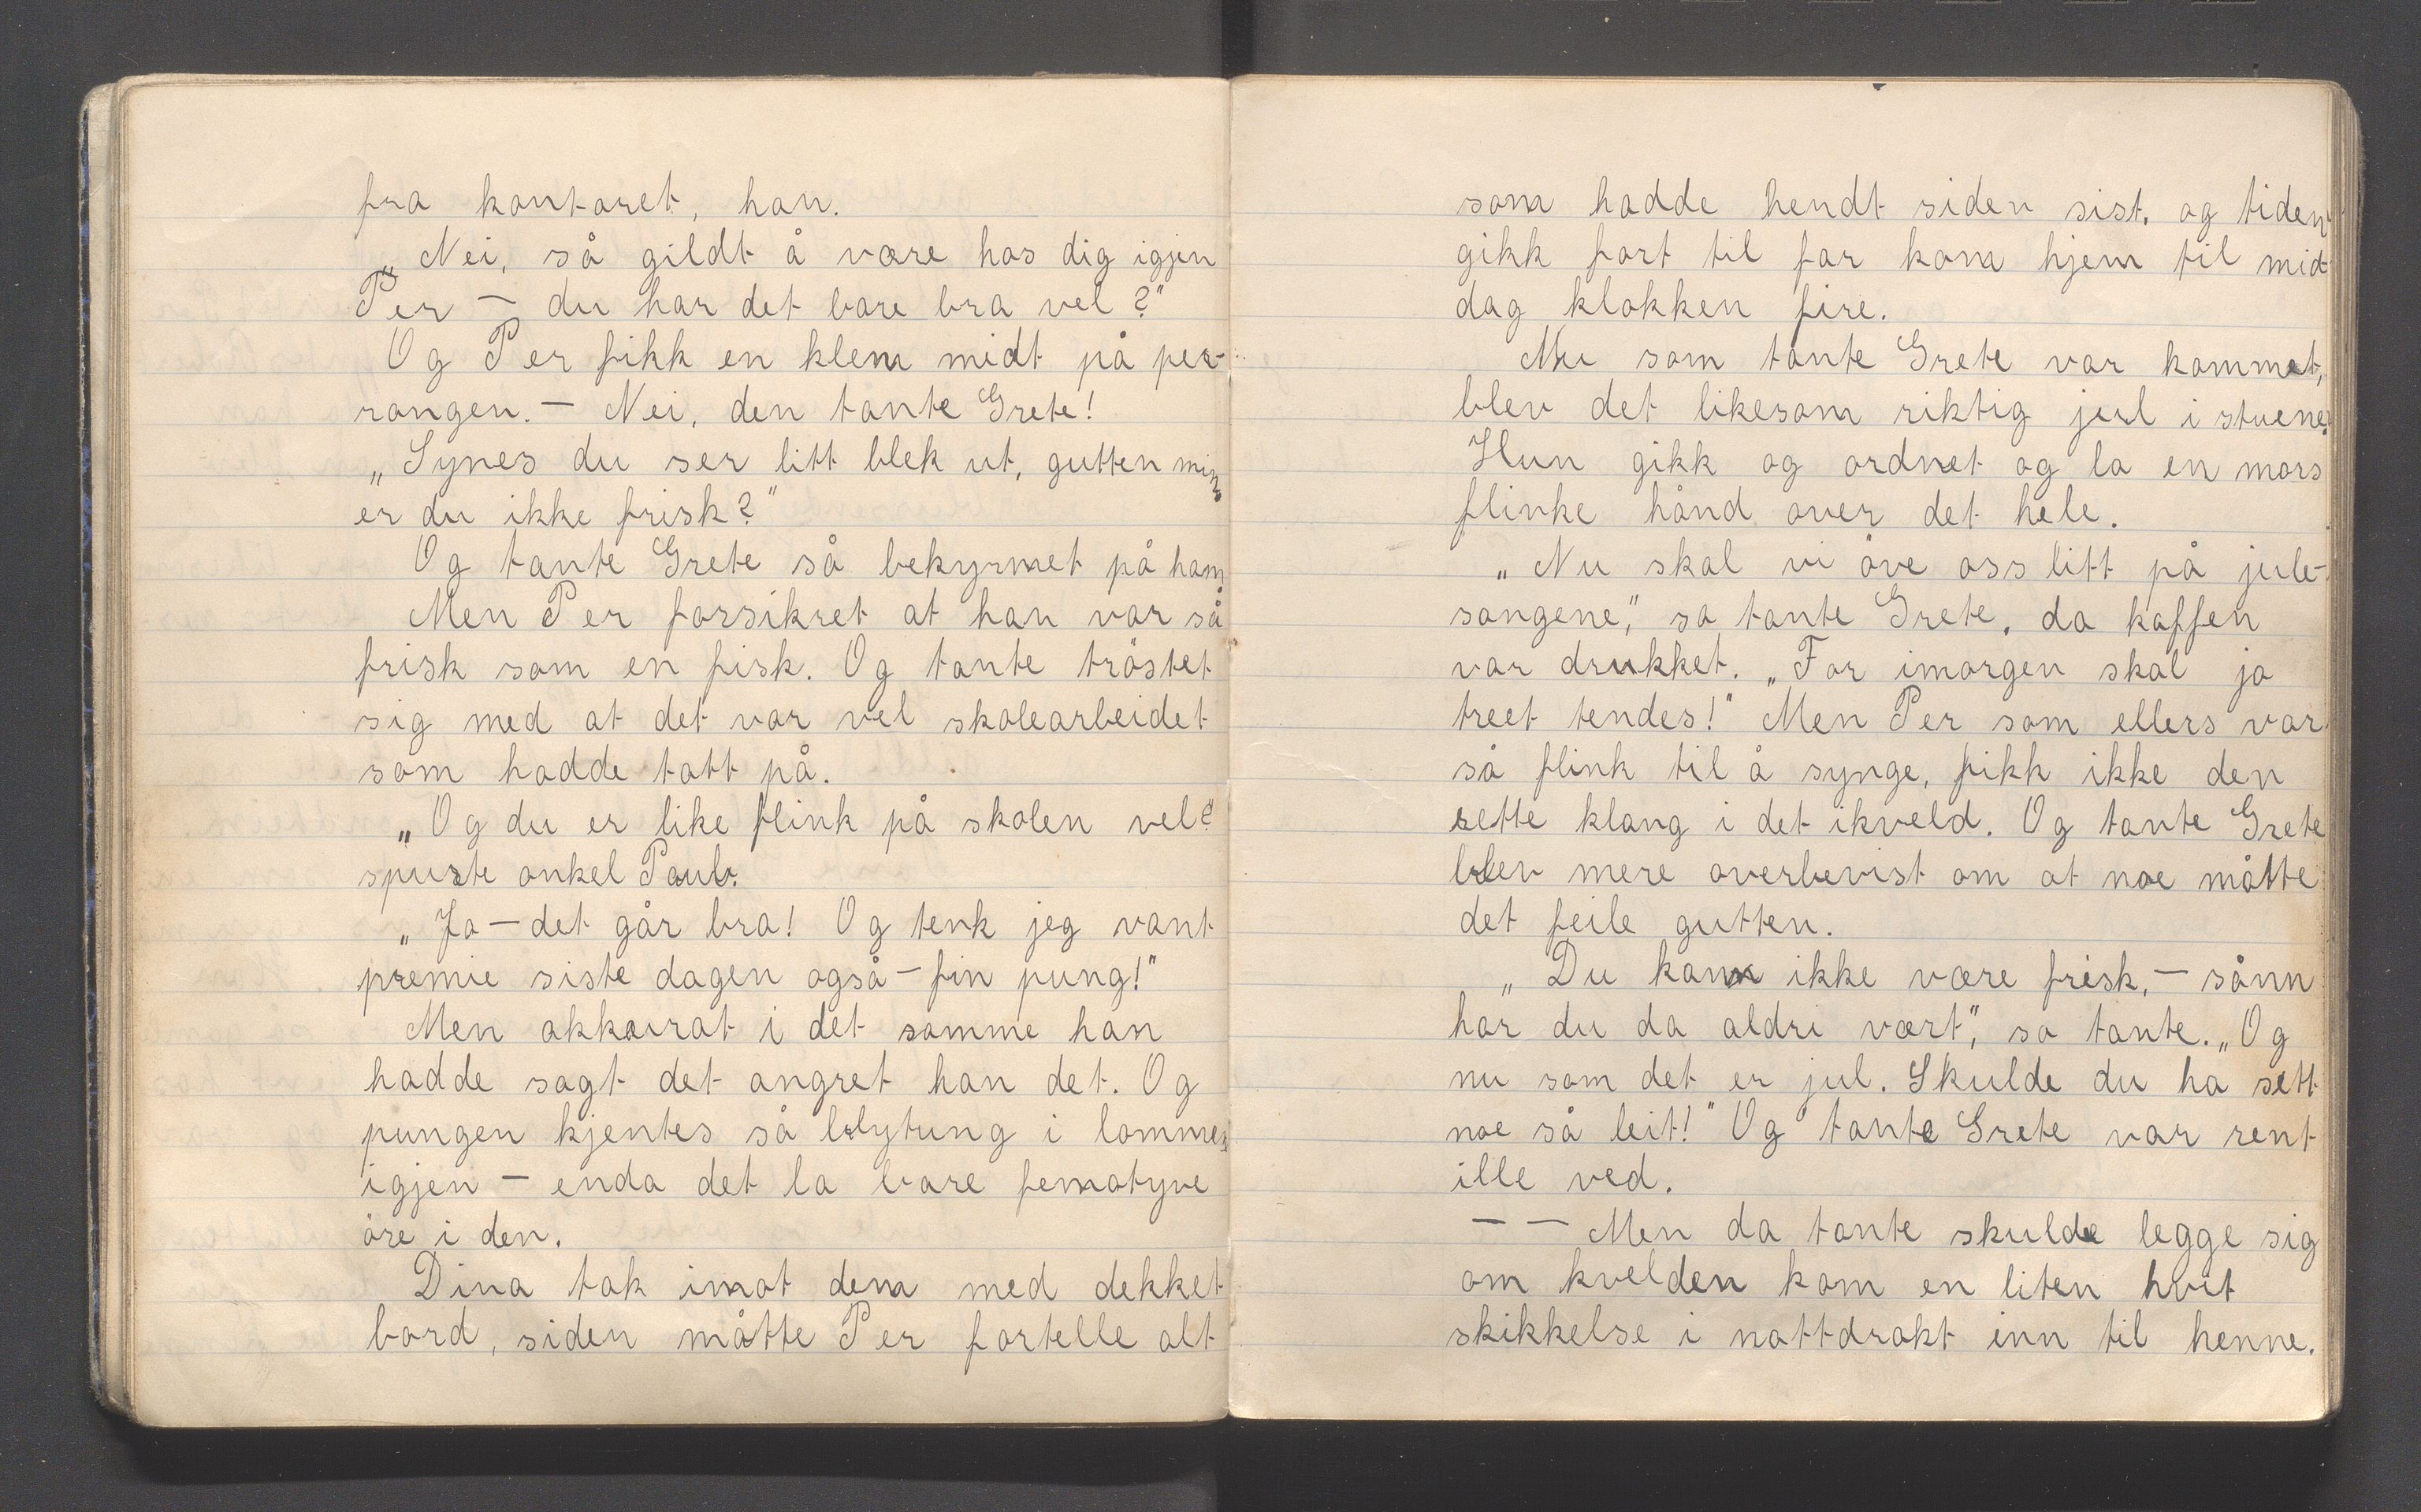 fra kontoret, han.
„Nei, så gildt å være hos dig igjen
Per — du har det bare bra vel?"
Og Per fikk en klem midt på per-
rongen. — Nei, den tante Grete!
„Synes du ser litt blek ut, gutten min,
er du ikke frisk?"
Og tante Grete så bekyrmet på ham.
Men Per forsikret at han var så
frisk som en fisk. Og tante tröstet
sig med at det var vel skolearbeidet
som hadde tatt på.
„Og du er like flink på skolen vel?"
spurte onkel Paul.
„Ja — det går bra! Og tenk jeg vant
premie siste dagen også — fin pung!"
Men akkurat i det samme han
hadde sagt det angret han det. Og
pungen kjentes så blytung i lommen
igjen — enda det la bare femotyve
öre i den.
Dina tok imot dem med dekket
bord, siden måtte Per fortelle alt
som hadde hendt siden sist, og tiden
gikk fort til far kom hjem til mid-
dag klokken fire.
Nu som tante Grete var kommet,
blev det likesom riktig jul i stuene.
Hun gikk og ordnet og la en mors
flinke hånd over det hele.
„Nu skal vi öve oss litt på jule-
sangene," sa tante Grete, da kaffen
var drukket. „For imorgen skal jo
treet tendes!" Men Per som ellers var
så flink til å synge, fikk ikke den
rette klang i det ikveld. Og tante Grete
blev mere overbevist om at noe måtte
det feile gutten.
„Du kann ikke være frisk, — sånn
har du da aldri vært," sa tante. „Og
nu som det er jul. Skulde du ha sett
noe så leit!" Og tante Grete var rent
ille ved.
— — Men da tante skulde legge sig
om kvelden kom en liten hvit
skikkelse i nattdrakt inn til henne.